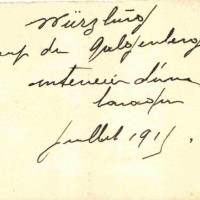 Würzburg
Camp de Galgenberg
intérieur d'une
baraque
Juillet 1915.